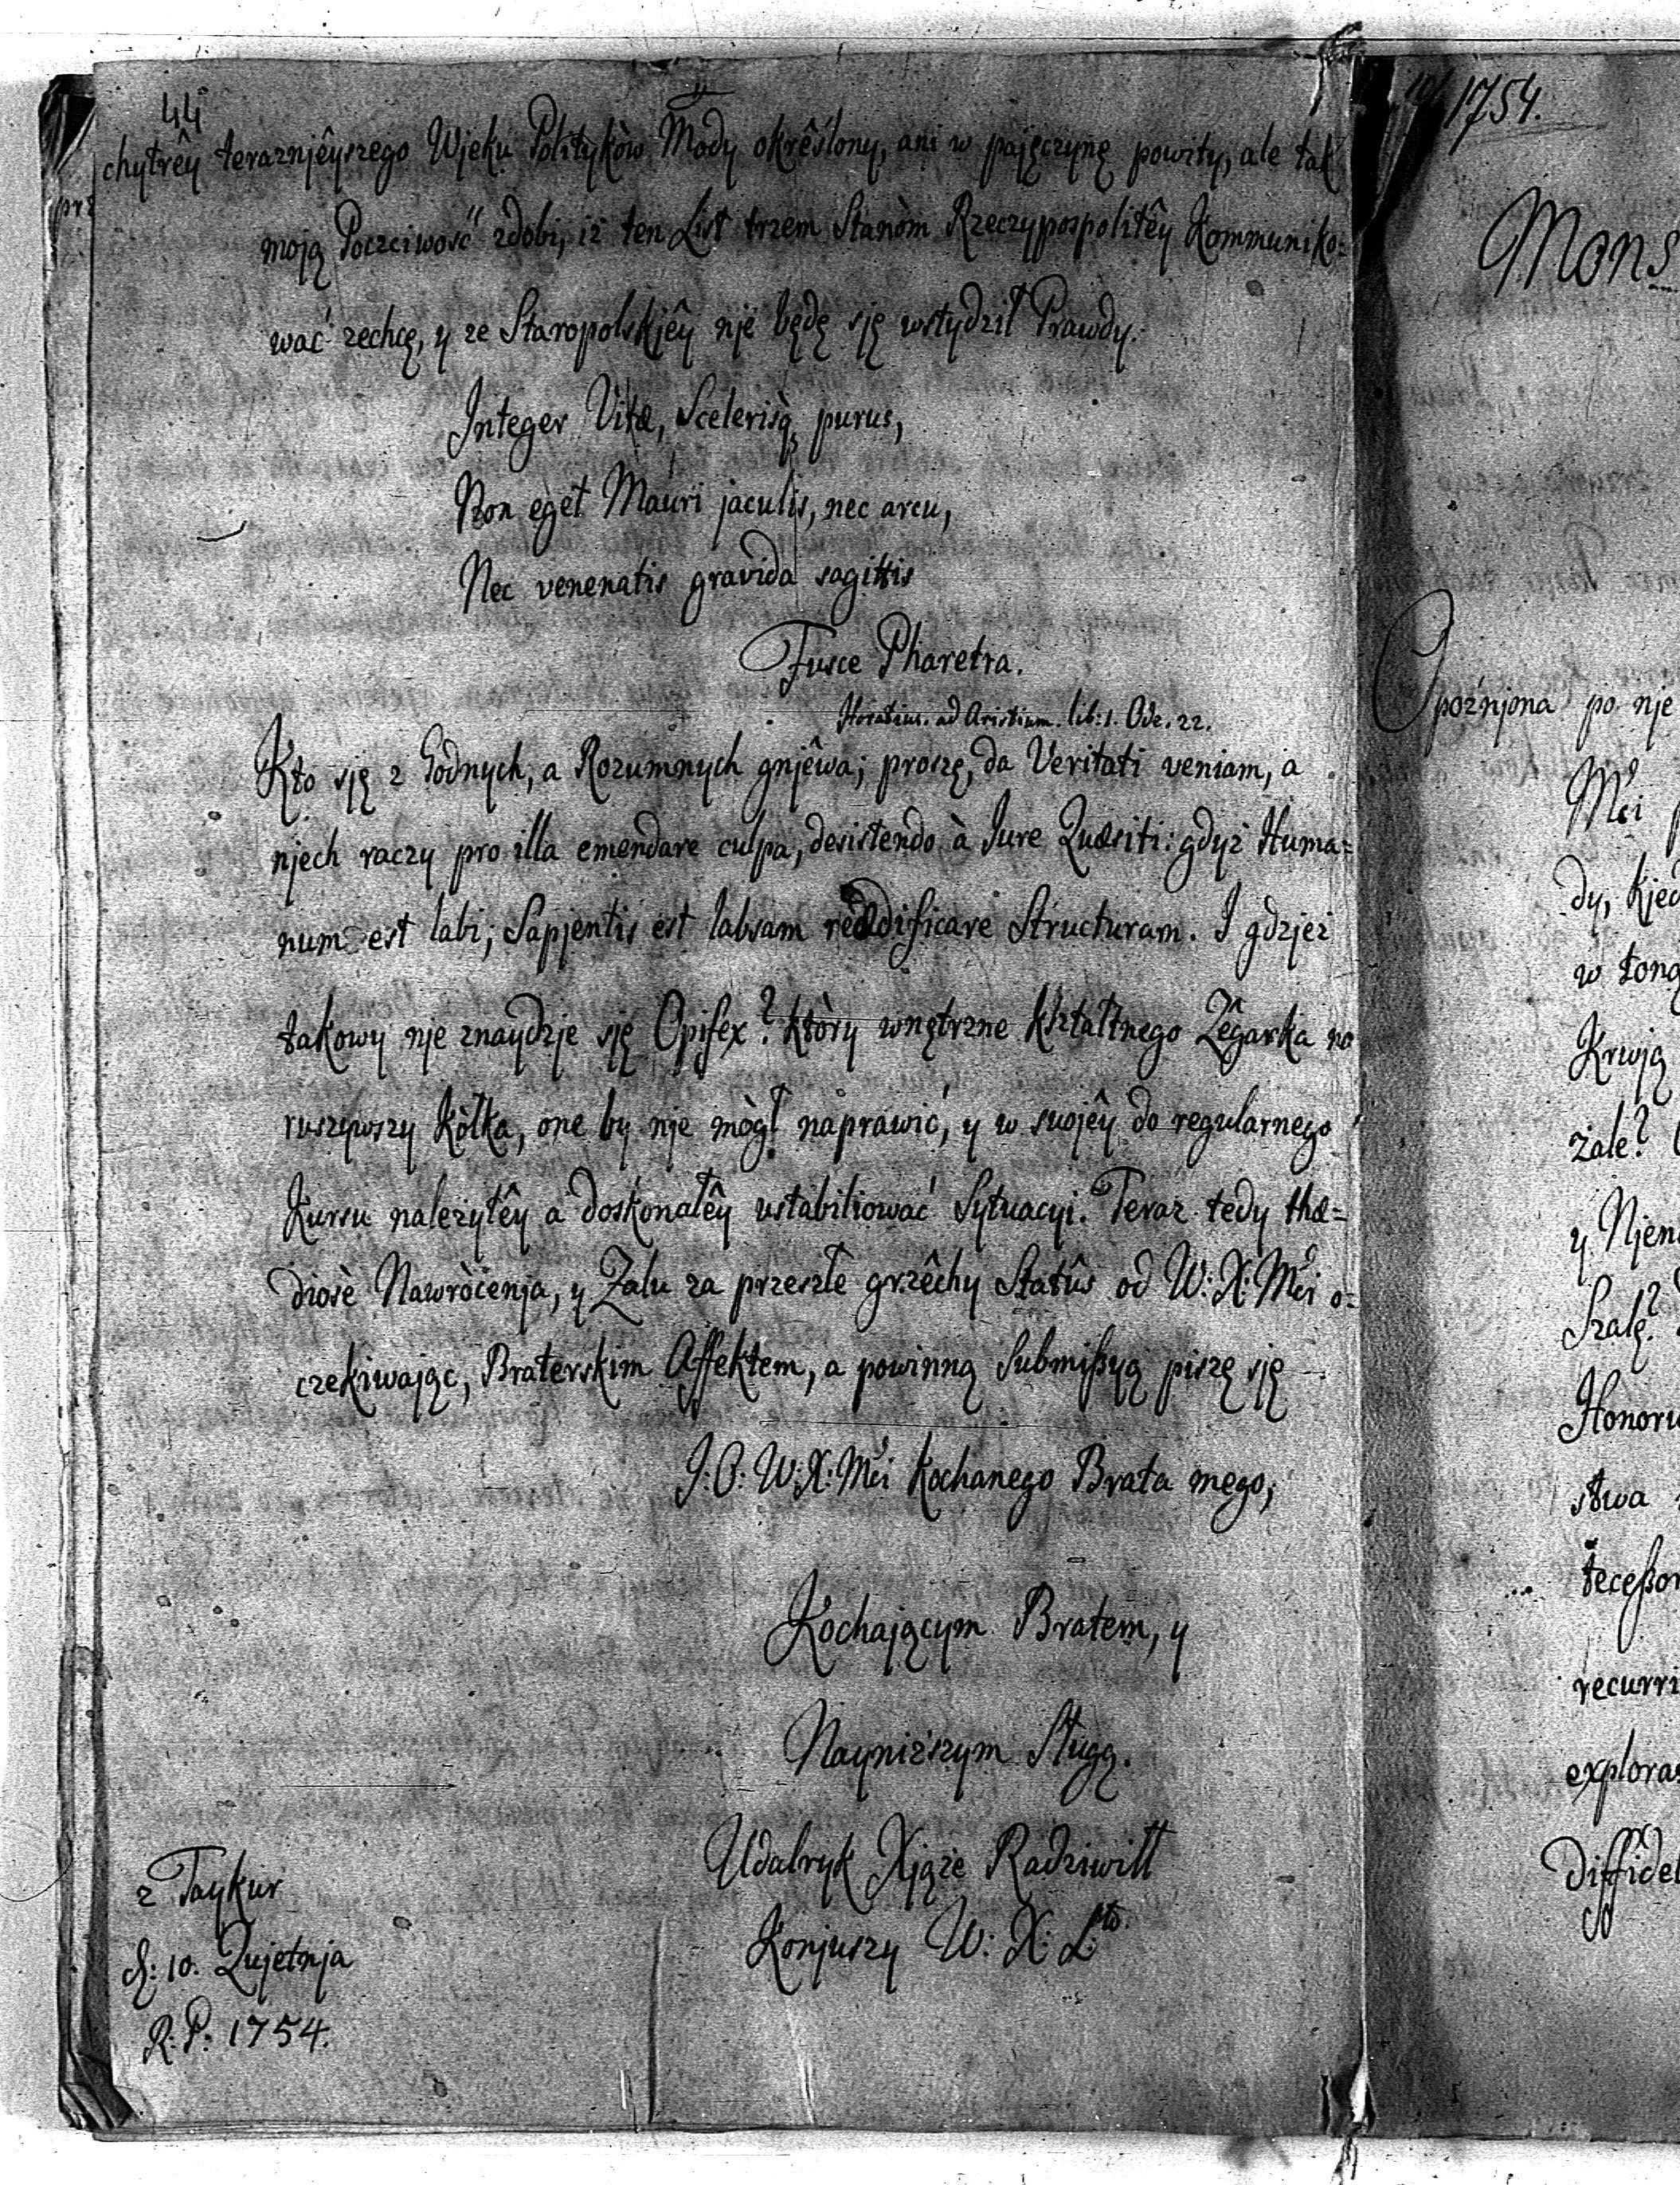 44
chytrêy teraznjêyszego Wjeku Politykòw Mody okrêślony, ani w pajęczynę powity, ale tak
moją Poczciwość zdobi, iż ten List trzem Stanòm Rzeczypospolitêy Kommuniko=
wać zechcę, y ze Staropolskjêy nje będę sję wstydził Prawdy.
Integer Vitæ, Scelerisq purus,
Non eget Mauri jaculis, nec arcu,
Nec venenatis gravida sagittis
Fusce Pharetra.
Horatius. ad Aristium. lib: 1. Ode. 22.
Kto sję z Godnych, a Rozumnych gnjêwa; proszę, da Veritati veniam, a
njech raczy pro illa emendare culpa, desistendo à Jure Quæsiti: gdyż Huma=
num est labi; Sapjentis est labsam reædificare Structuram. I gdzjeż
takowy nje znaydzje sję Opifex? ktòry wnętrzne kształtnego Zêgarka na
ruszywszy Kòłka, one by nje mògł naprawić, y w swojêy do regularnego
Kursu nalezytêy a doskonałêy ustabiliować Sytuacyi. Teraz tedy thæ=
diosè Nawròcenja, y Zalu za przeszłe grzêchy Statûs od W: X: Mći o=
czekiwając, Braterskim Affektem, a powinną Submißyą piszę sję
J: O: W: X: Mći Kochanego Brata mego,
Kochającym Bratem, y
Nayniższym Sługą.
Udalryk Xjąże Radziwiłł
Konjuszy W: X: L:
z Taykur
d: 10. Qujetnja
R: P: 1754.
1754.
Mons
Opoźnjona po nje
Mći
dy, kjed
w łoną
Krwją
żale?
y Njem
Szalę?
Honoru
stwa
teceßor
recurri
explora
diffidel